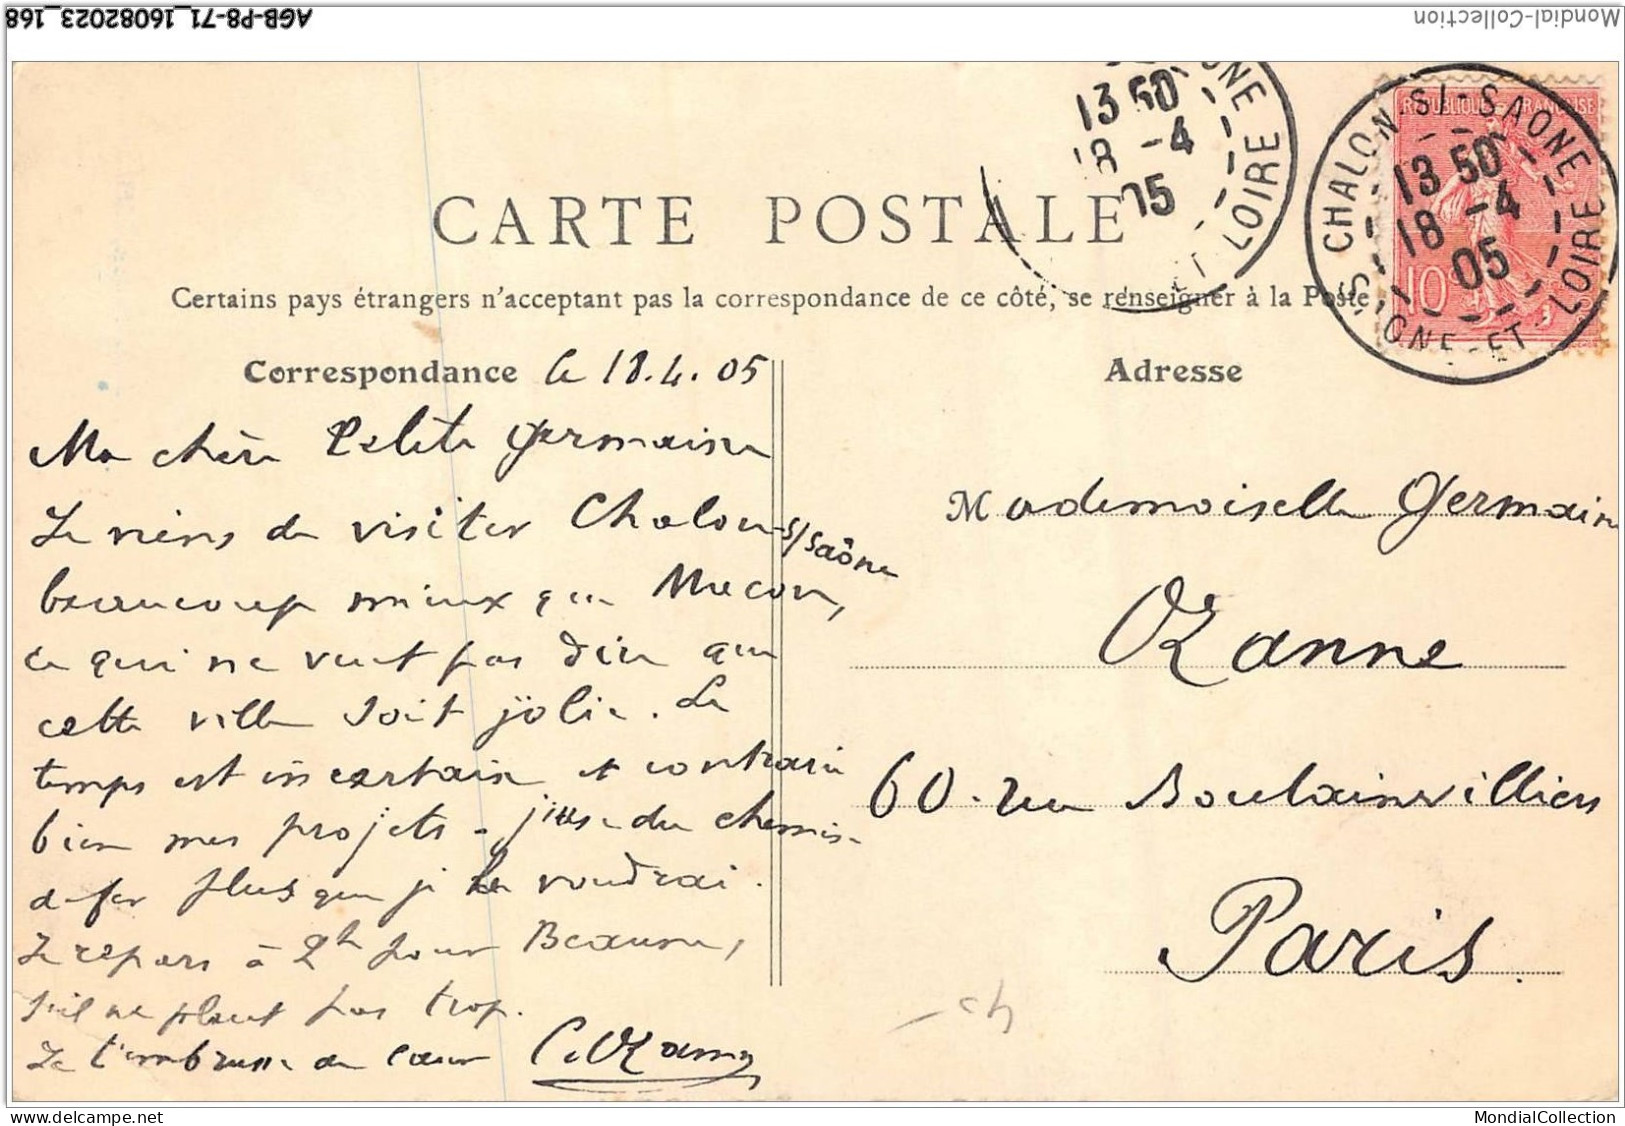 AGB-P8-71_16082023_168
Mondial-Collection
13 50
18 -4
05
ONE
ET-LOIRE
CHALON-S/-SAONE
13 50
18 -4
05
ONE-ET-LOIRE
REPUBLIQUE FRANÇAISE
10
CARTE POSTALE
Certains pays étrangers n'acceptant pas la correspondance de ce côté, se renseigner à la Poste
Correspondance le 18.4.05
Ma chère Petite Germaine
Je viens de visiter Chalon s/Saône
beaucoup mieux que Macon,
ce qui ne veut pas dire que
cette ville soit jolie. Le
temps est incertain et contrarie
bien mes projets - j'use du chemin
de fer plus que je le voudrai.
Je repars à 2h pour Beaune,
s'il ne pleut pas trop.
Je t'embrasse de cœur C. Ozanne
Adresse
Mademoiselle Germaine
Ozanne
60 rue Boulainvilliers
Paris.
MondialCollection